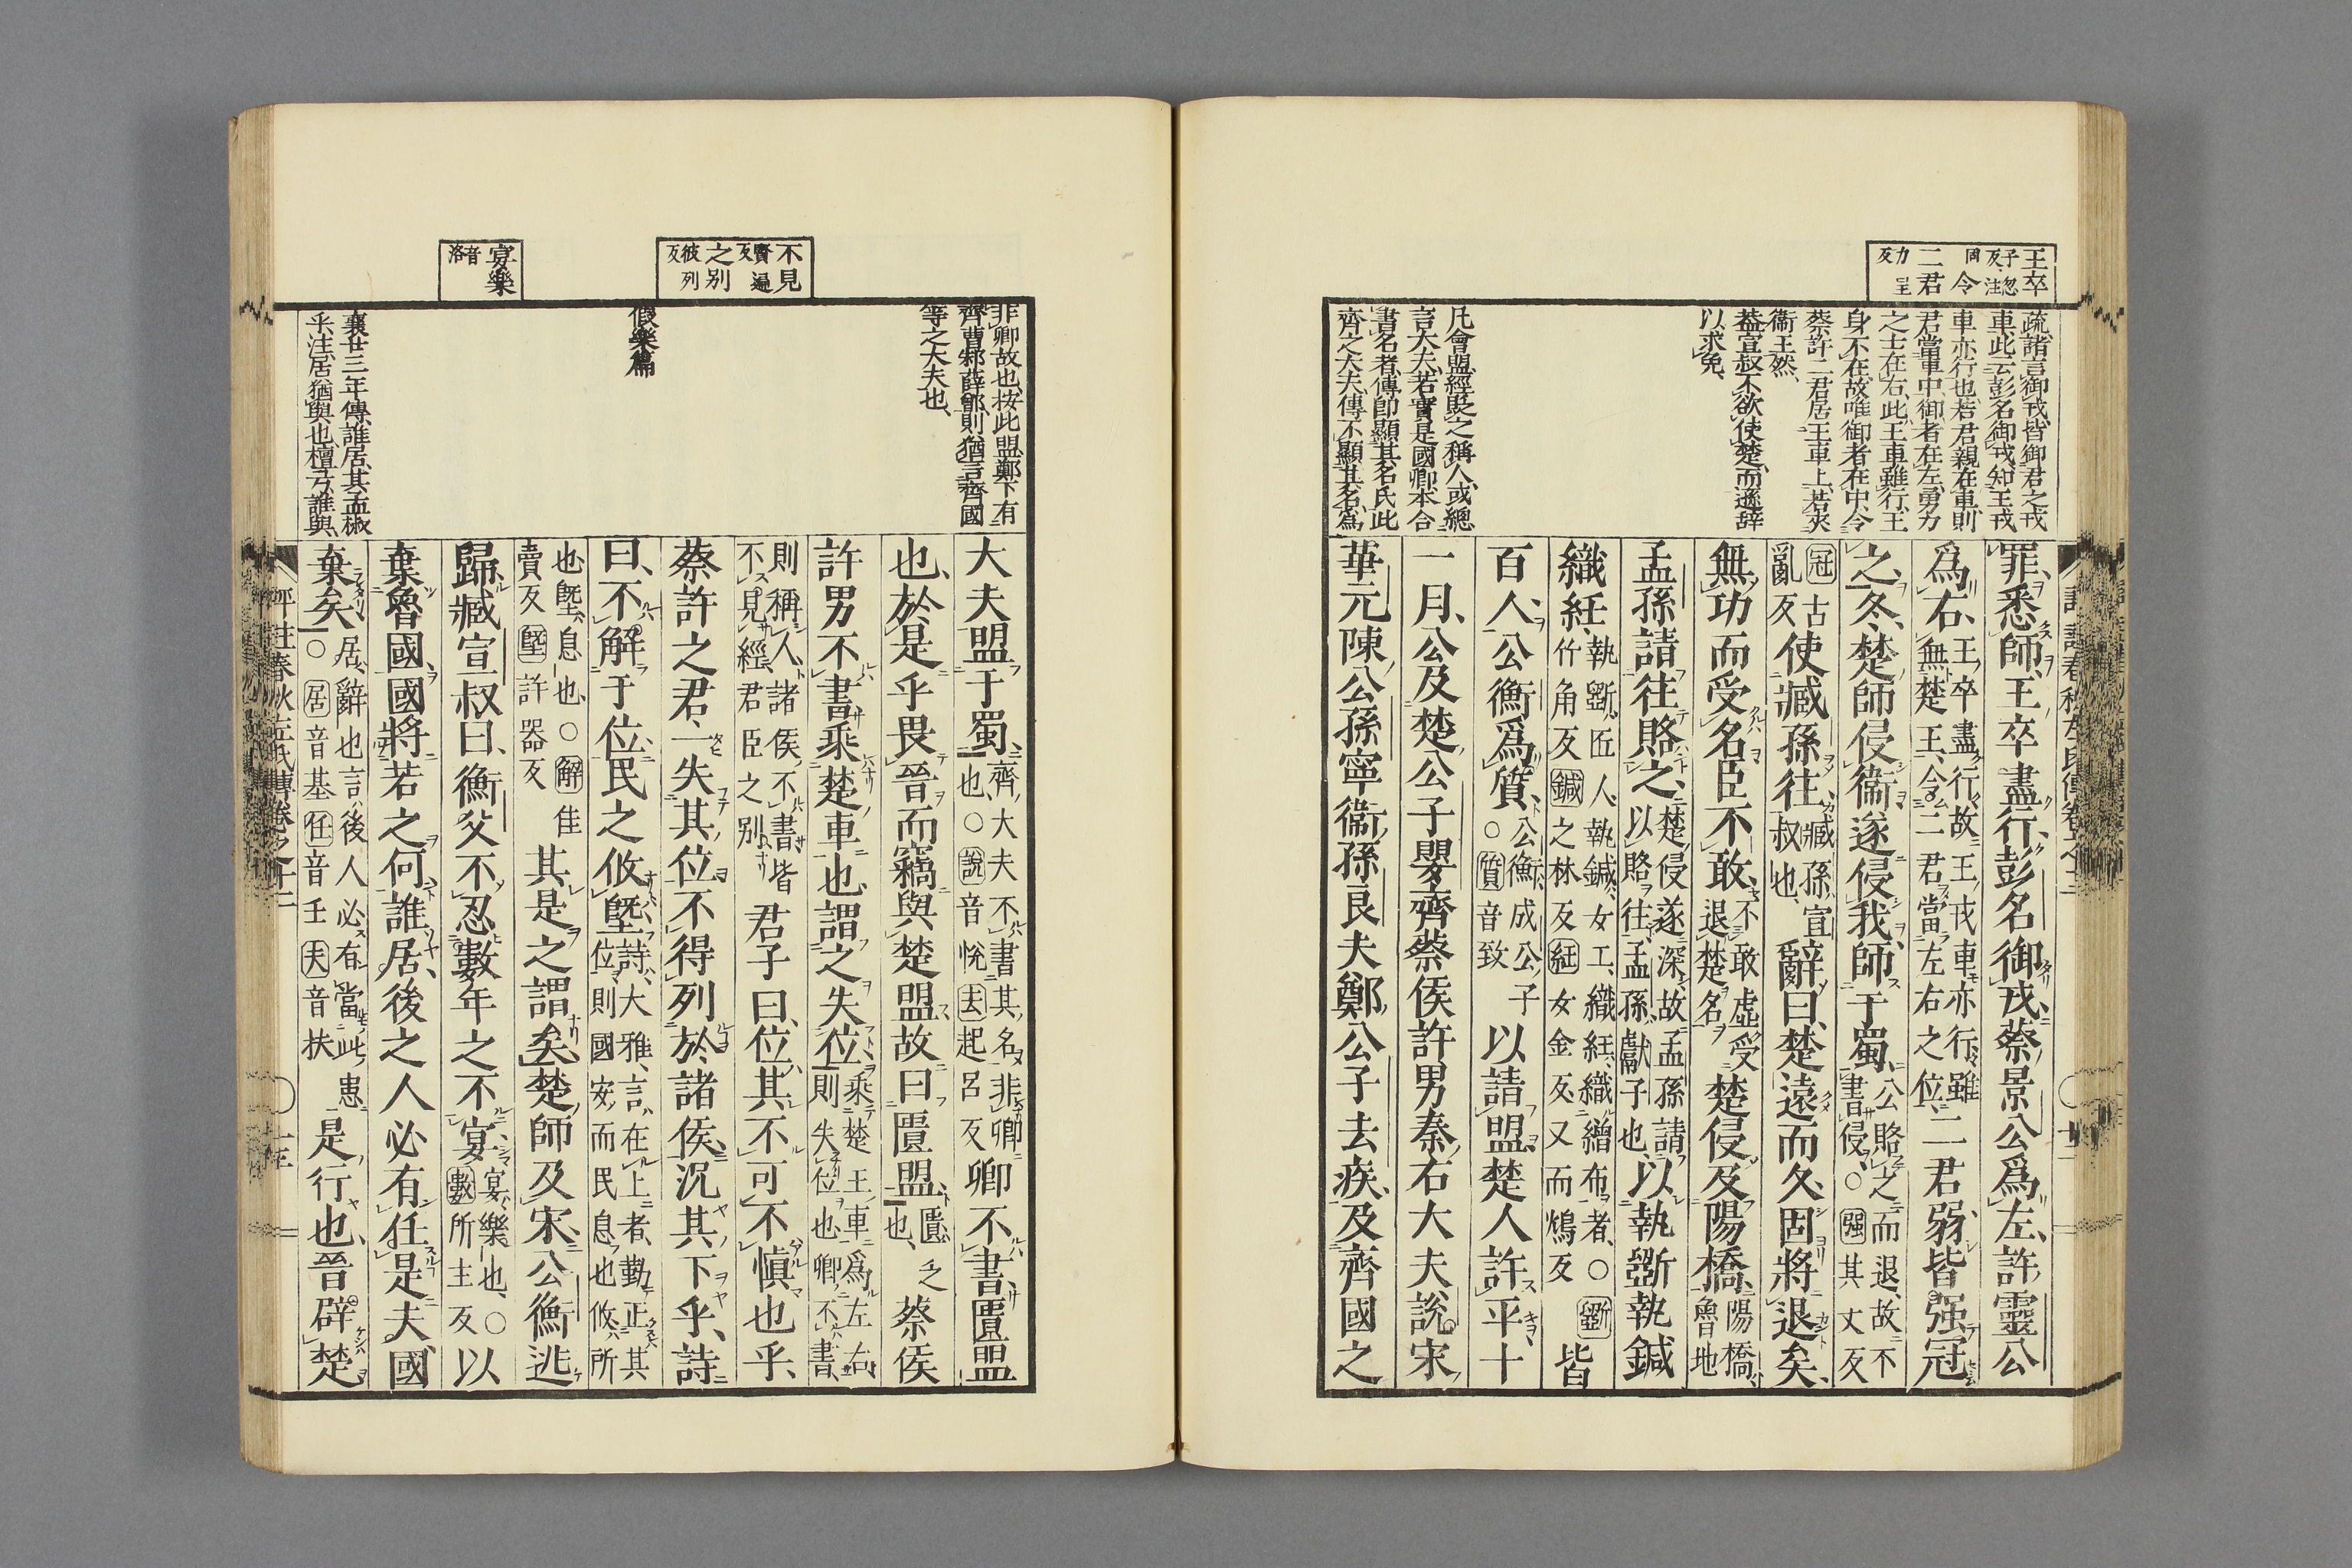 王卒
子忽反注同
令
二君
力呈反
疏諸言御戎皆御君之戎
車此云彭名御戎知王戎
車亦行也若君親在車則
君當車中御者在左勇力
之士在右此王車雖行王
身不在故唯御者在中令
蔡許二君居王車上若夾
衞王然
葢宣叔不欲使楚而遜辭
以求免
凡會盟經貶之稱人或總
言大夫若實是國卿本合
書名者傳卽顯其名氏此
齊之大夫傳不顯其名爲
罪悉師王卒盡行彭名御戎蔡景公爲左許靈公
爲右王卒盡行故王戎車亦行雖無楚王令二君當左右之位二君弱皆强冠
之冬楚師侵衞遂侵我師于蜀公賂之而退故不書侵○强其丈反
冠古亂反使臧孫往臧孫宣叔也辭曰楚遠而久固將退矣
無功而受名臣不敢不敢虛受退楚名楚侵及陽橋陽橋魯地
孟孫請往賂之楚侵遂深故孟孫請以賂往孟孫獻子也以執斲執鍼
織紝執斲匠人執鍼女工織紝織繒布者○斲竹角反鍼之林反紝女金反又而鴆反皆
百人公衡爲質公衡成公子○質音致以請盟楚人許平十
一月公及楚公子嬰齊蔡侯許男秦右大夫說宋
華元陳公孫寧衞孫良夫鄭公子去疾及齊國之
不見
賢遍反
之别
彼列反
宴樂
音洛
非卿故也按此盟鄭下有
齊曹邾薛鄫則猶言齊國
等之大夫也
假樂篇
襄廿三年傳誰居其孟椒
乎注居猶與也檀弓誰與
大夫盟于蜀齊大夫不書其名非卿也○說音悅去起呂反卿不書匱盟
也於是乎畏晉而竊與楚盟故曰匱盟匱乏也蔡侯
許男不書乘楚車也謂之失位乘楚王車爲左右則失位也卿不書
則稱人諸侯不書皆不見經君臣之别君子曰位其不可不愼也乎
蔡許之君一失其位不得列於諸侯況其下乎詩
曰不解于位民之攸墍詩大雅言在上者勤正其位則國安而民息也攸所
也墍息也○解佳賣反墍許器反其是之謂矣楚師及宋公衡逃
歸臧宣叔曰衡父不忍數年之不宴宴樂也○數所主反以
棄魯國國將若之何誰居後之人必有任是夫國
棄矣居辭也言後人必有當此患○居音基任音壬夫音扶是行也晉辟楚
評註春秋左氏傳卷之十二